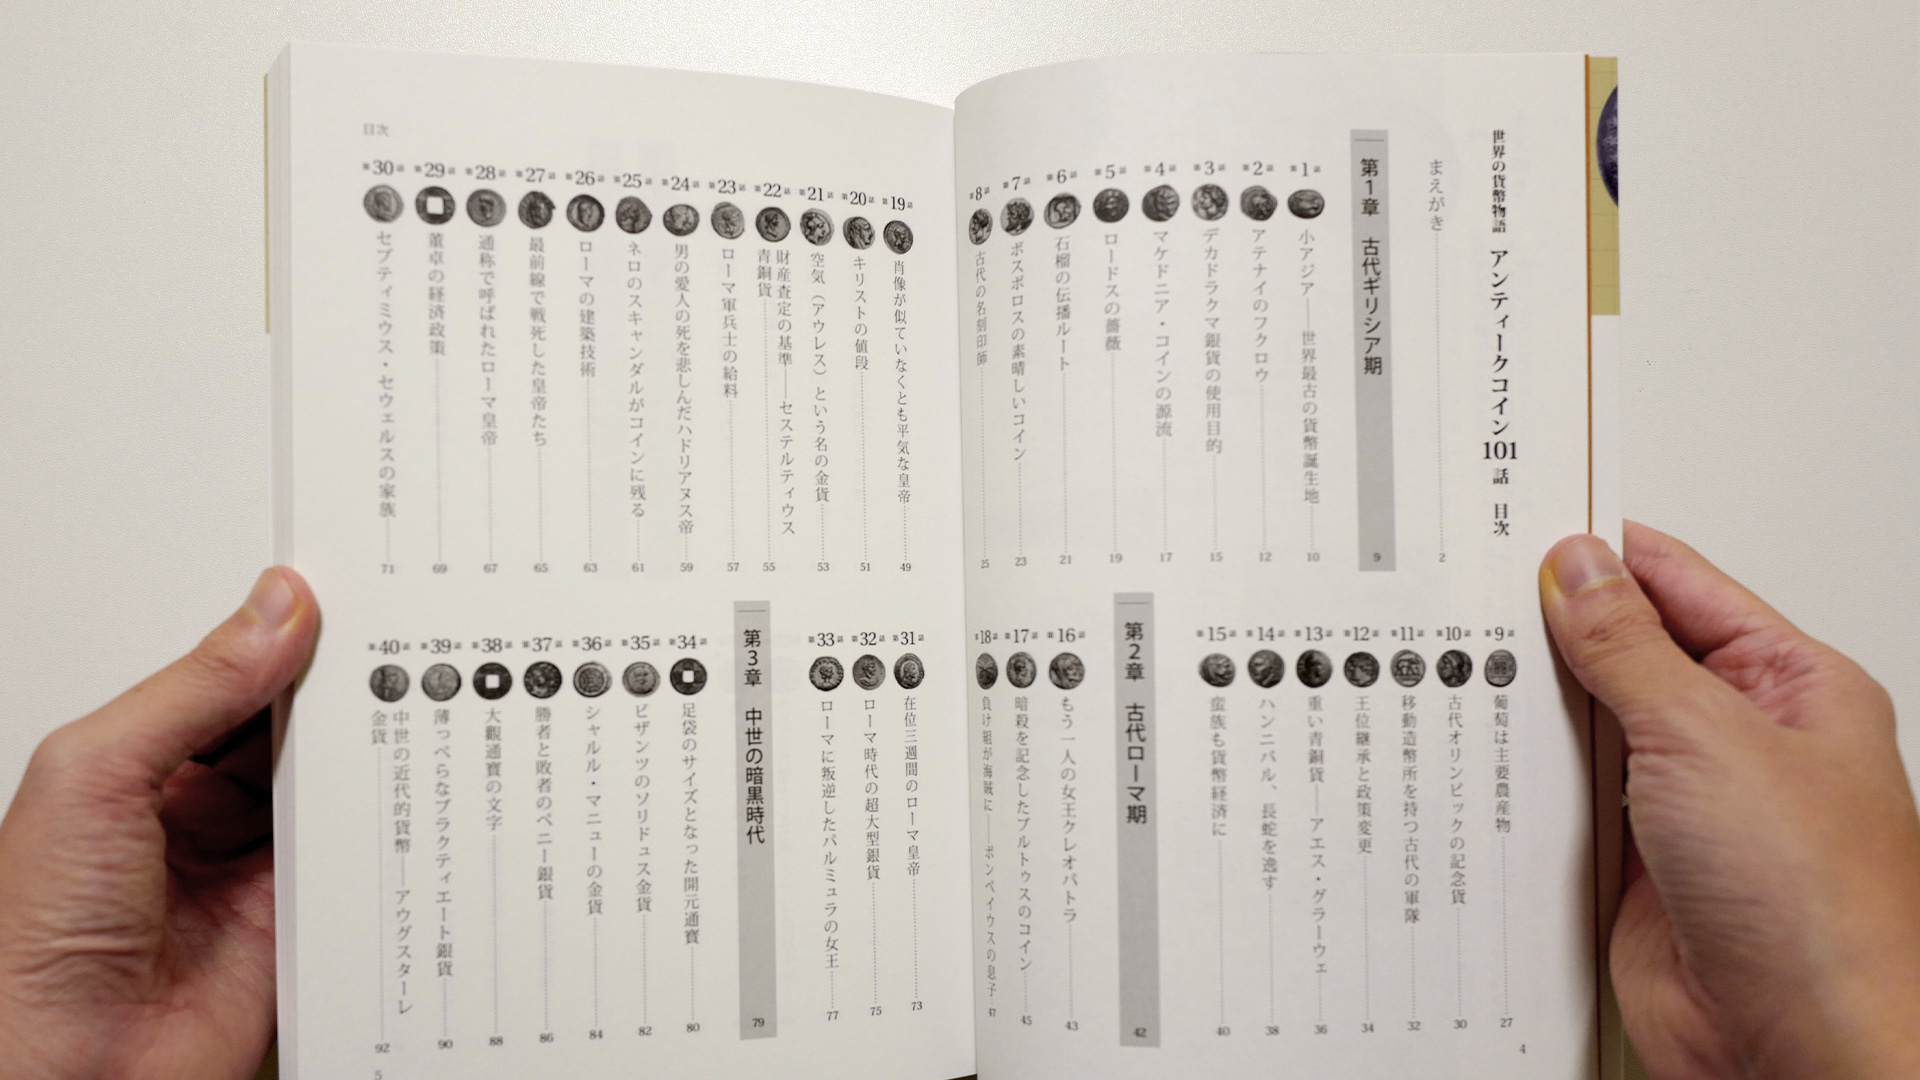 世界の貨幣物語 アンティークコイン101話 目次
まえがき 2
第1章 古代ギリシア期 9
第1話 小アジア――世界最古の貨幣誕生地 10
第2話 アテナイのフクロウ 12
第3話 デカドラクマ銀貨の使用目的 15
第4話 マケドニア・コインの源流 17
第5話 ロードスの薔薇 19
第6話 石榴の伝播ルート 21
第7話 ボスポロスの素晴しいコイン 23
第8話 古代の名刻印師 25
第9話 葡萄は主要農産物 27
第10話 古代オリンピックの記念貨 30
第11話 移動造幣所を持つ古代の軍隊 32
第12話 王位継承と政策変更 34
第13話 重い青銅貨――アエス・グラーウェ 36
第14話 ハンニバル、長蛇を逸す 38
第15話 蛮族も貨幣経済に 40
第2章 古代ローマ期 42
第16話 もう一人の女王クレオパトラ 43
第17話 暗殺を記念したブルトゥスのコイン 45
第18話 負け組が海賊に――ポンペイウスの息子 47
4
目次
第19話 肖像が似ていなくとも平気な皇帝 49
第20話 キリストの値段 51
第21話 空気（アウレス）という名の金貨 53
第22話 財産査定の基準――セステルティウス
青銅貨 55
第23話 ローマ軍兵士の給料 57
第24話 男の愛人の死を悲しんだハドリアヌス帝 59
第25話 ネロのスキャンダルがコインに残る 61
第26話 ローマの建築技術 63
第27話 最前線で戦死した皇帝たち 65
第28話 通称で呼ばれたローマ皇帝 67
第29話 董卓の経済政策 69
第30話 セプティミウス・セウェルスの家族 71
第31話 在位三週間のローマ皇帝 73
第32話 ローマ時代の超大型銀貨 75
第33話 ローマに叛逆したパルミュラの女王 77
第3章 中世の暗黒時代 79
第34話 足袋のサイズとなった開元通寶 80
第35話 ビザンツのソリドュス金貨 82
第36話 シャルル・マニューの金貨 84
第37話 勝者と敗者のペニー銀貨 86
第38話 大觀通寶の文字 88
第39話 薄っぺらなブラクティエート銀貨 90
第40話 中世の近代的貨幣――アウグスターレ
金貨 92
5